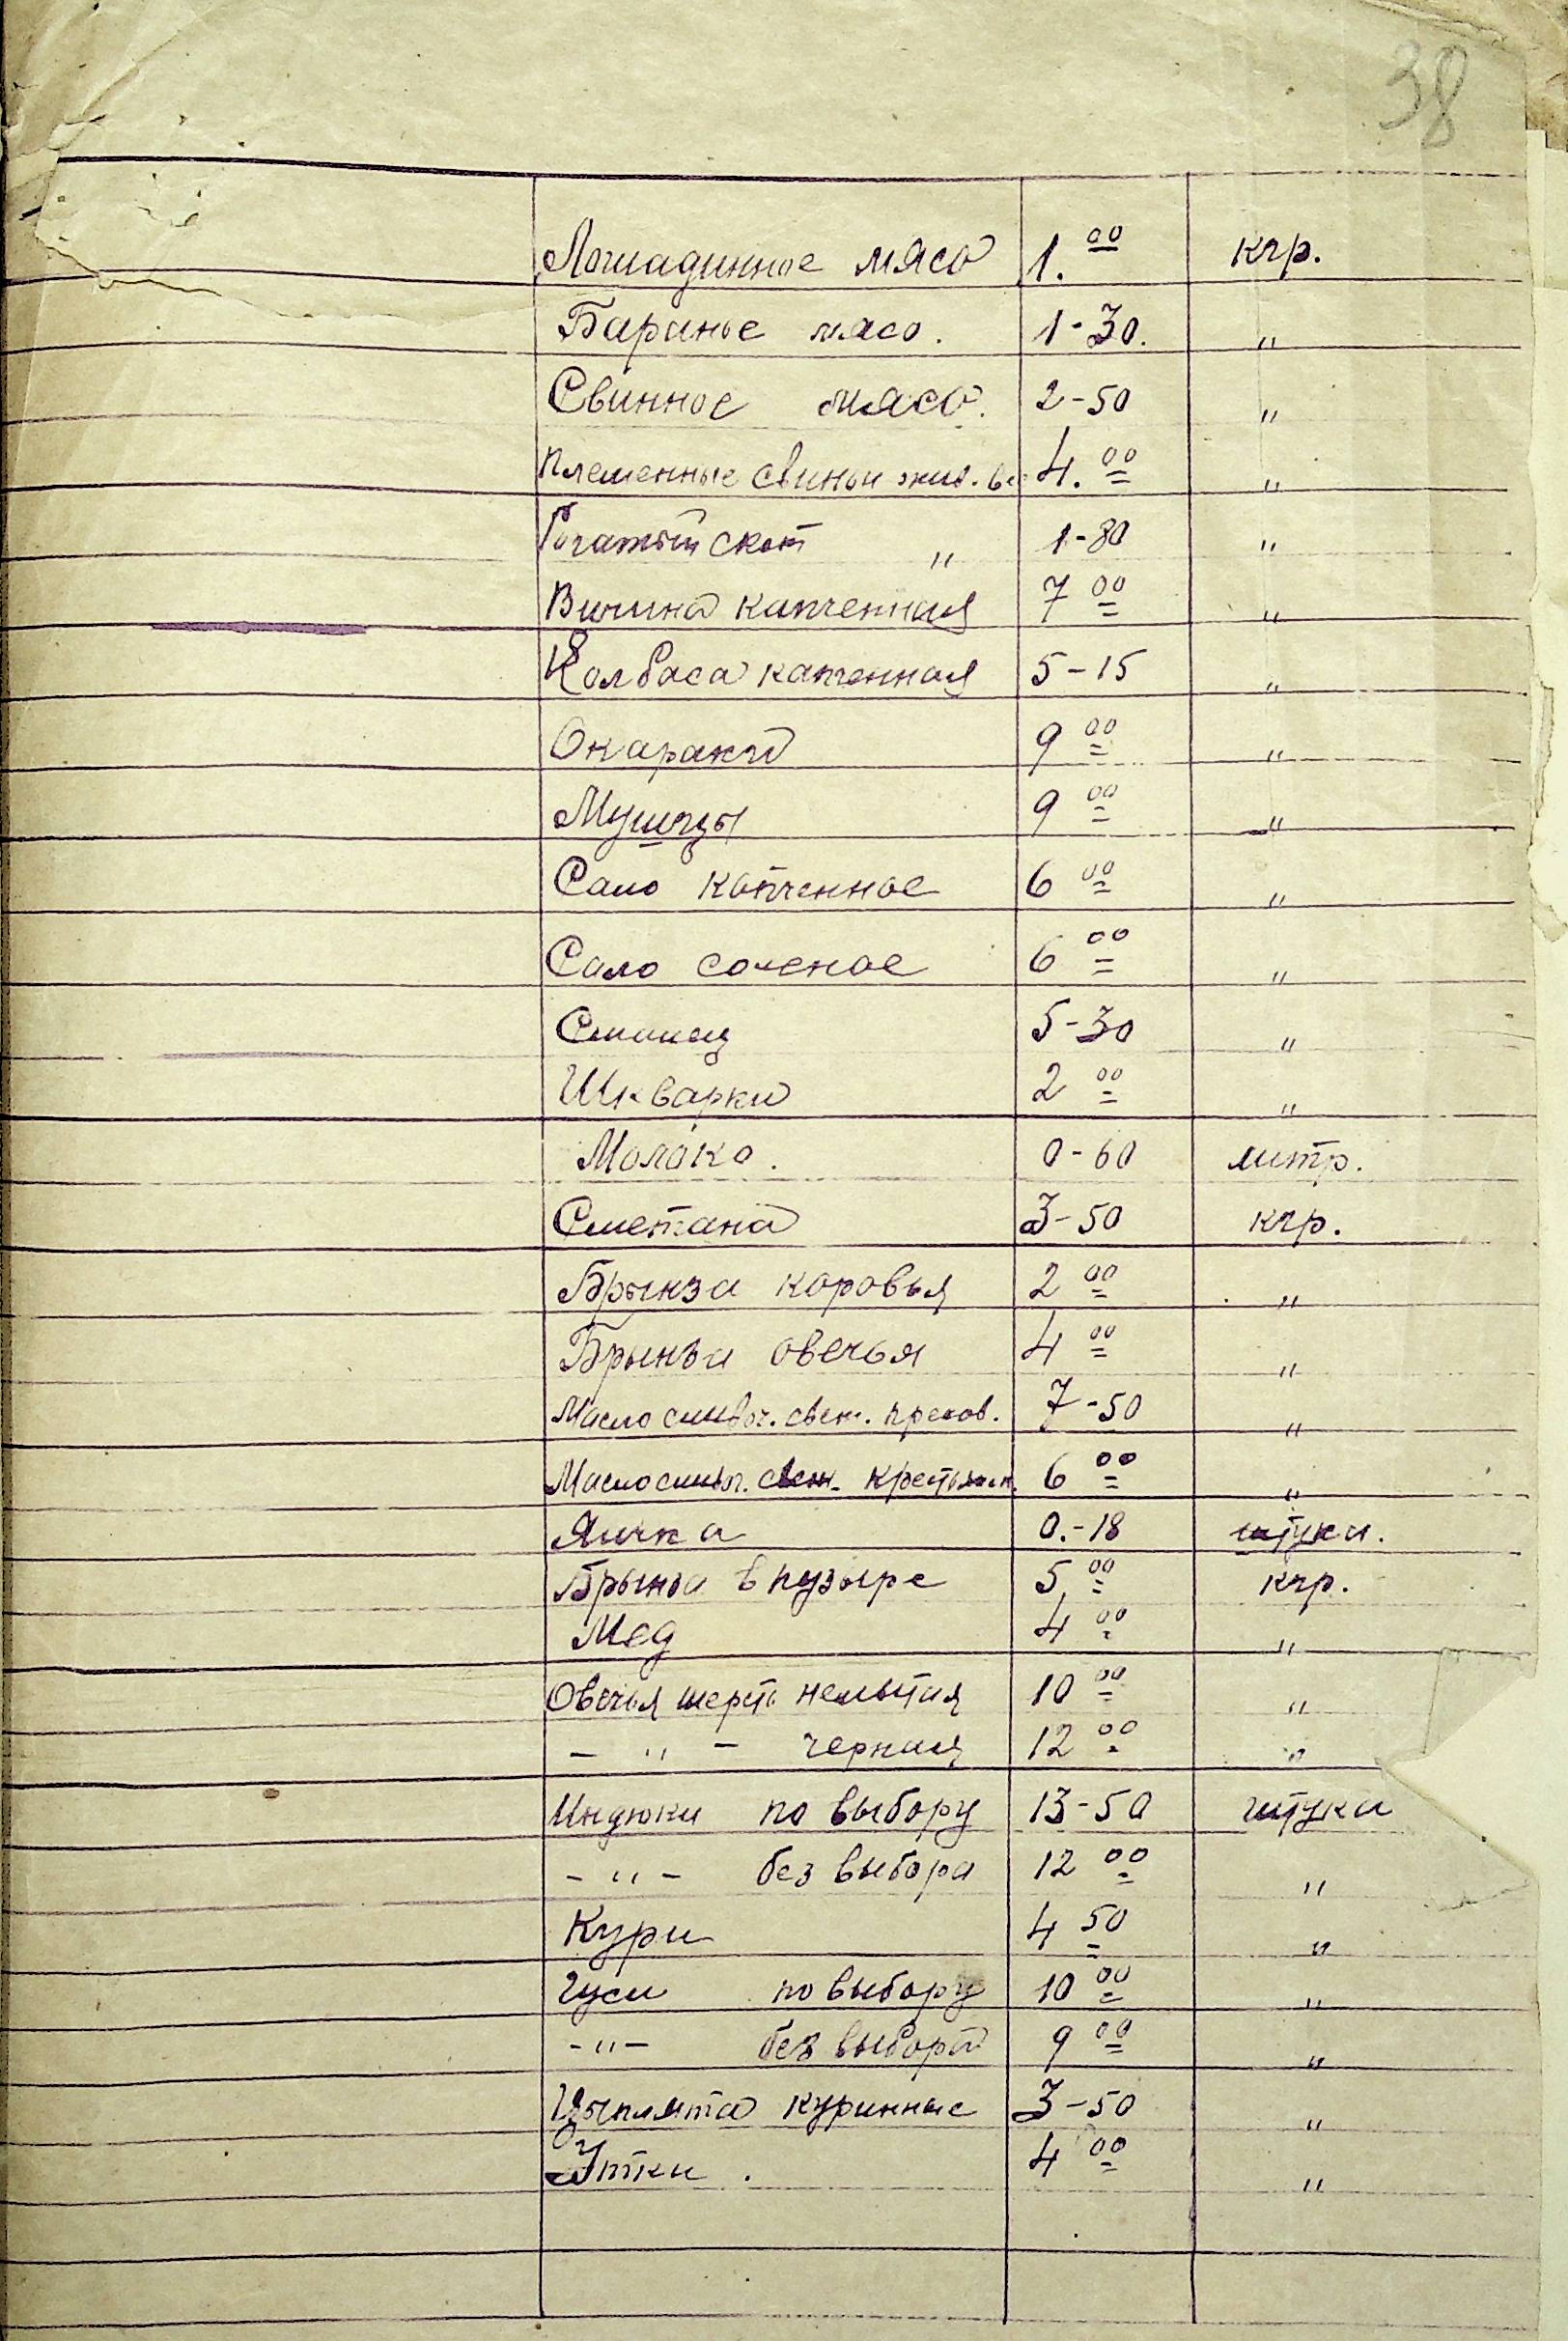 38
Лошадинное мясо 1.00 кгр.
Баранье мясо. 1-30. "
Свинное мясо. 2-50 "
Племенные свиньи жив. ве 4.00 "
Рогатый скот " 1-80 "
Вичина капченная 7 00 "
Колбаса капченная 5-15 "
Окараки 9 00 "
Мушцы 9 00 "
Сало копченное 6 00 "
Сало соленое 6 00 "
Смалец 5-30 "
Шкварки 2 00 "
Молоко. 0-60 литр.
Сметана 3-50 кгр.
Брынза коровья 2 00 "
Брынза овечья 4 00 "
Масло сливоч. свеж. 7-50 "
Масло сливоч. свеж. крестьян. 6 00 "
Яичка 0.-18 штука.
Брынза в пузыре 5 00 кгр.
Мед 4 00 "
Овечья шерсть немытая 10 00 "
- " - черная 12 00 "
Индюки по выбору 13-50 штука
- " - без выбора 12 00 "
Кури 4 50 "
Гуси по выбору 10 00 "
- " - без выбора 9 00 "
Цыплята куринные 3-50 "
Утки. 4 00 "